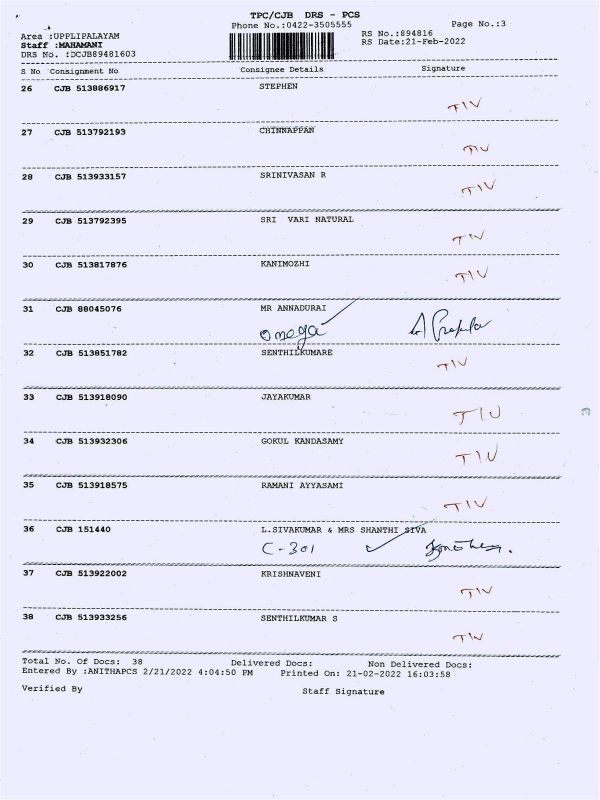 TPC/CJB DRS - PCS
Phone No.:0422-3505555
Page No.:3
Area :UPPLIPALAYAM
RS No.:894816
Staff :MAHAMANI
RS Date:21-Feb-2022
DRS No. :DCJB89481603
S No Consignment No Consignee Details Signature
26 CJB 513886917 STEPHEN
TIV
27 CJB 513792193 CHINNAPPAN
TIV
28 CJB 513933157 SRINIVASAN R
TIV
29 CJB 513792395 SRI VARI NATURAL
TIV
30 CJB 513817876 KANIMOZHI
TIV
31 CJB 88045076 MR ANNADURAI
omega
32 CJB 513851782 SENTHILKUMARE
TIV
33 CJB 513918090 JAYAKUMAR
TIV
34 CJB 513932306 GOKUL KANDASAMY
TIV
35 CJB 513918575 RAMANI AYYASAMI
TIV
36 CJB 151440 L.SIVAKUMAR & MRS SHANTHI SIVA
C-301
37 CJB 513922002 KRISHNAVENI
TIV
38 CJB 513933256 SENTHILKUMAR S
TIV
Total No. Of Docs: 38 Delivered Docs: Non Delivered Docs:
Entered By :ANITHAPCS 2/21/2022 4:04:50 PM Printed On: 21-02-2022 16:03:58
Verified By Staff Signature